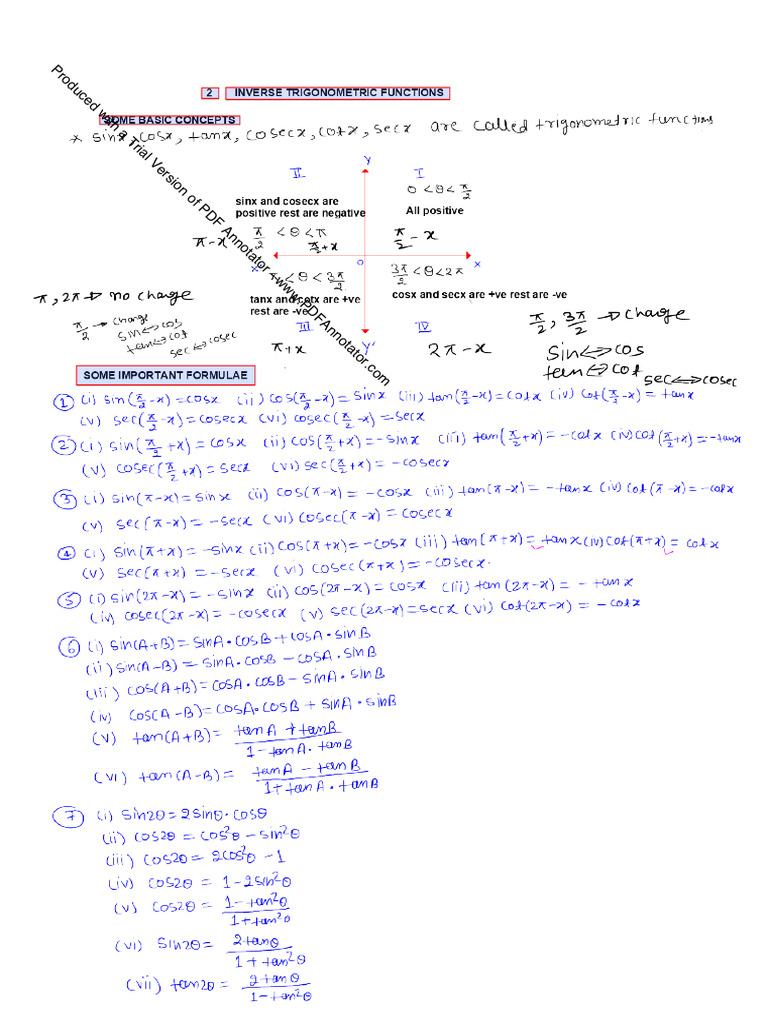 2 INVERSE TRIGONOMETRIC FUNCTIONS
SOME BASIC CONCEPTS
* sinx, cosx, tanx, cosecx, cotx, secx are called trigonometric functions
Produced with a Trial Version of PDF Annotator - www.PDFAnnotator.com
y
II I
0 < θ < π/2
sinx and cosecx are
positive rest are negative
All positive
π/2 < θ < π
π-x π/2+x π/2 - x
x' o x
< θ < 3π/2
3π/2 < θ < 2π
tanx and cotx are +ve
rest are -ve
cosx and secx are +ve rest are -ve
π, 2π → no change
π/2 → change
sin ↔ cos
tan ↔ cot
sec ↔ cosec
III IV
π/2, 3π/2 → change
π+x y' 2π-x
sin ↔ cos
tan ↔ cot
sec ↔ cosec
SOME IMPORTANT FORMULAE
① (i) sin(π/2 -x) = cosx (ii) cos(π/2 -x) = sinx (iii) tan(π/2 -x) = cotx (iv) cot(π/2 -x) = tanx
(v) sec(π/2 -x) = cosecx (vi) cosec(π/2 -x) = secx
② (i) sin(π/2 +x) = cosx (ii) cos(π/2 +x) = -sinx (iii) tan(π/2 +x) = -cotx (iv) cot(π/2 +x) = -tanx
(v) cosec(π/2 +x) = secx (vi) sec(π/2 +x) = -cosecx
③ (i) sin(π-x) = sinx (ii) cos(π-x) = -cosx (iii) tan(π-x) = -tanx (iv) cot(π-x) = -cotx
(v) sec(π-x) = -secx (vi) cosec(π-x) = cosecx
④ (i) sin(π+x) = -sinx (ii) cos(π+x) = -cosx (iii) tan(π+x) = tanx (iv) cot(π+x) = cotx
(v) sec(π+x) = -secx (vi) cosec(π+x) = -cosecx.
⑤ (i) sin(2π-x) = -sinx (ii) cos(2π-x) = cosx (iii) tan(2π-x) = -tanx
(iv) cosec(2π-x) = -cosecx (v) sec(2π-x) = secx (vi) cot(2π-x) = -cotx
⑥ (i) sin(A+B) = sinA·cosB + cosA·sinB
(ii) sin(A-B) = sinA·cosB - cosA·sinB
(iii) cos(A+B) = cosA·cosB - sinA·sinB
(iv) cos(A-B) = cosA·cosB + sinA·sinB
(v) tan(A+B) = (tanA + tanB)/(1 - tanA·tanB)
(vi) tan(A-B) = (tanA - tanB)/(1 + tanA·tanB)
⑦ (i) sin2θ = 2sinθ·cosθ
(ii) cos2θ = cos²θ - sin²θ
(iii) cos2θ = 2cos²θ - 1
(iv) cos2θ = 1 - 2sin²θ
(v) cos2θ = (1 - tan²θ)/(1 + tan²θ)
(vi) sin2θ = 2tanθ/(1 + tan²θ)
(vii) tan2θ = 2tanθ/(1 - tan²θ)